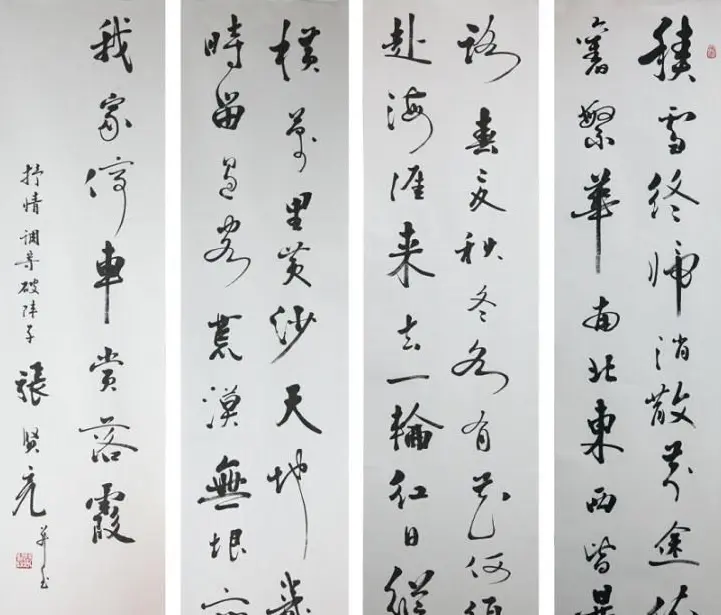 積雪終歸消散前途依
舊繁華南北東西皆是
路春夏秋冬各有花何須
赴海涯来去一輪紅日縱
橫萬里黃沙天地幾
時留過客荒漠無垠
我家停車賞落霞
抒情調寄破陣子
張賢亮並書